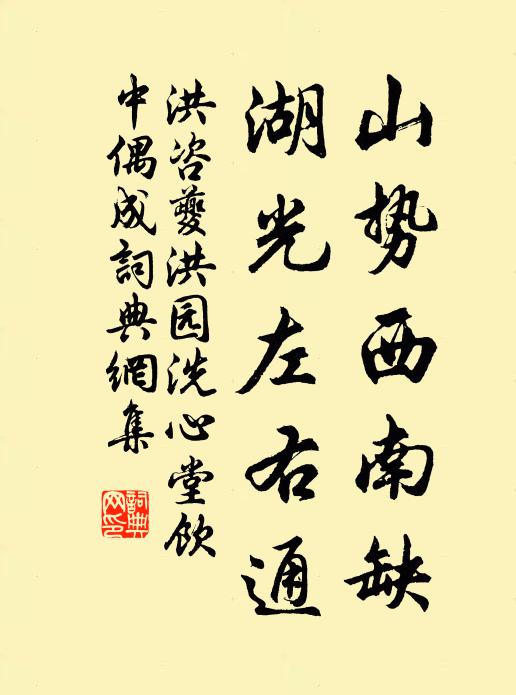 山势西南缺
湖光左右通
洪咨夔洪园洗心堂饮
中偶成詞典網集
詞典
网印